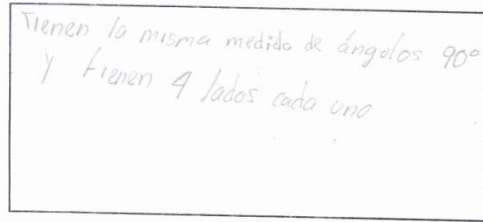 Tienen la misma medida de ángulos 90°
y tienen 4 lados cada uno